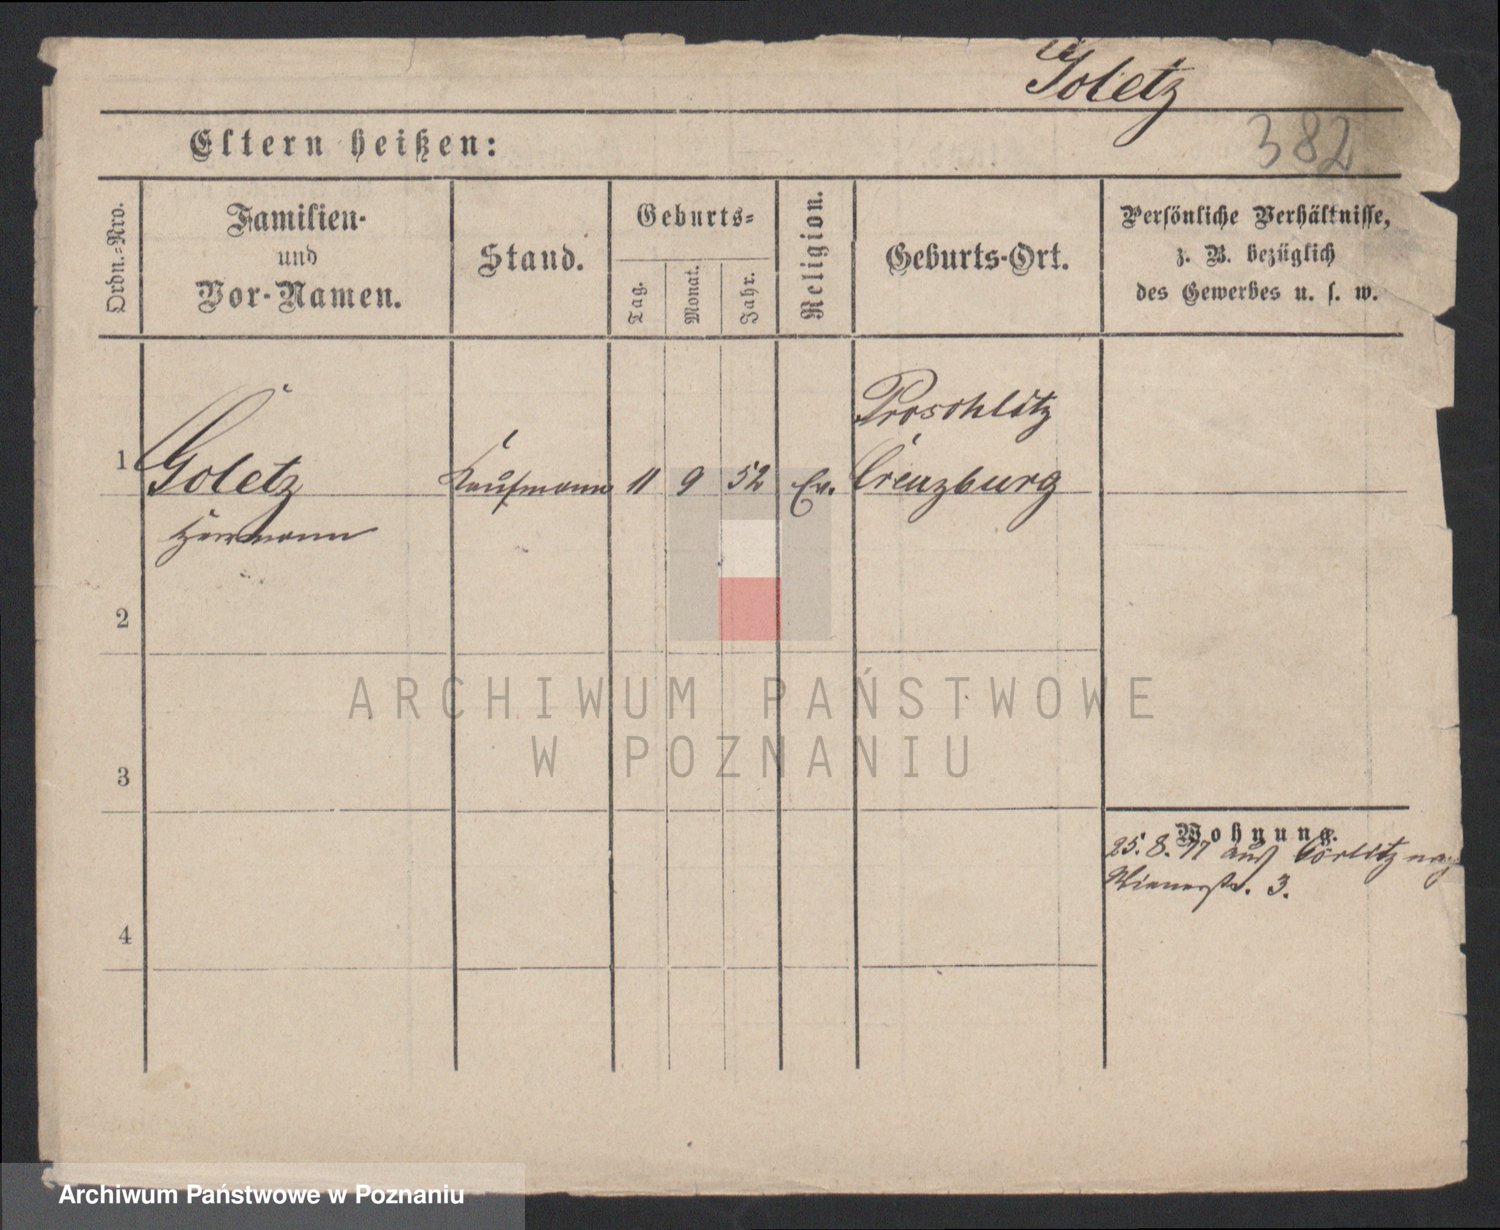 Goletz
382
Eltern heißen:
Ordn.-Nro.
Familien-
und
Vor-Namen.
Stand.
Geburts-
Tag.
Monat.
Jahr.
Religion.
Geburts-Ort.
Persönliche Verhältnisse,
z. B. bezüglich
des Gewerbes u. s. w.
Proschlitz
1 Goletz Kaufmann 11 9 52 Ev. Creuzburg
Herrmann
2
3
4
Wohnung.
25. 8. 77 aus Görlitz
Wienerstr. 3.
ARCHIWUM PAŃSTWOWE
W POZNANIU
Archiwum Państwowe w Poznaniu